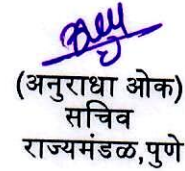 (अनुराधा ओक)
सचिव
राज्यमंडळ,पुणे